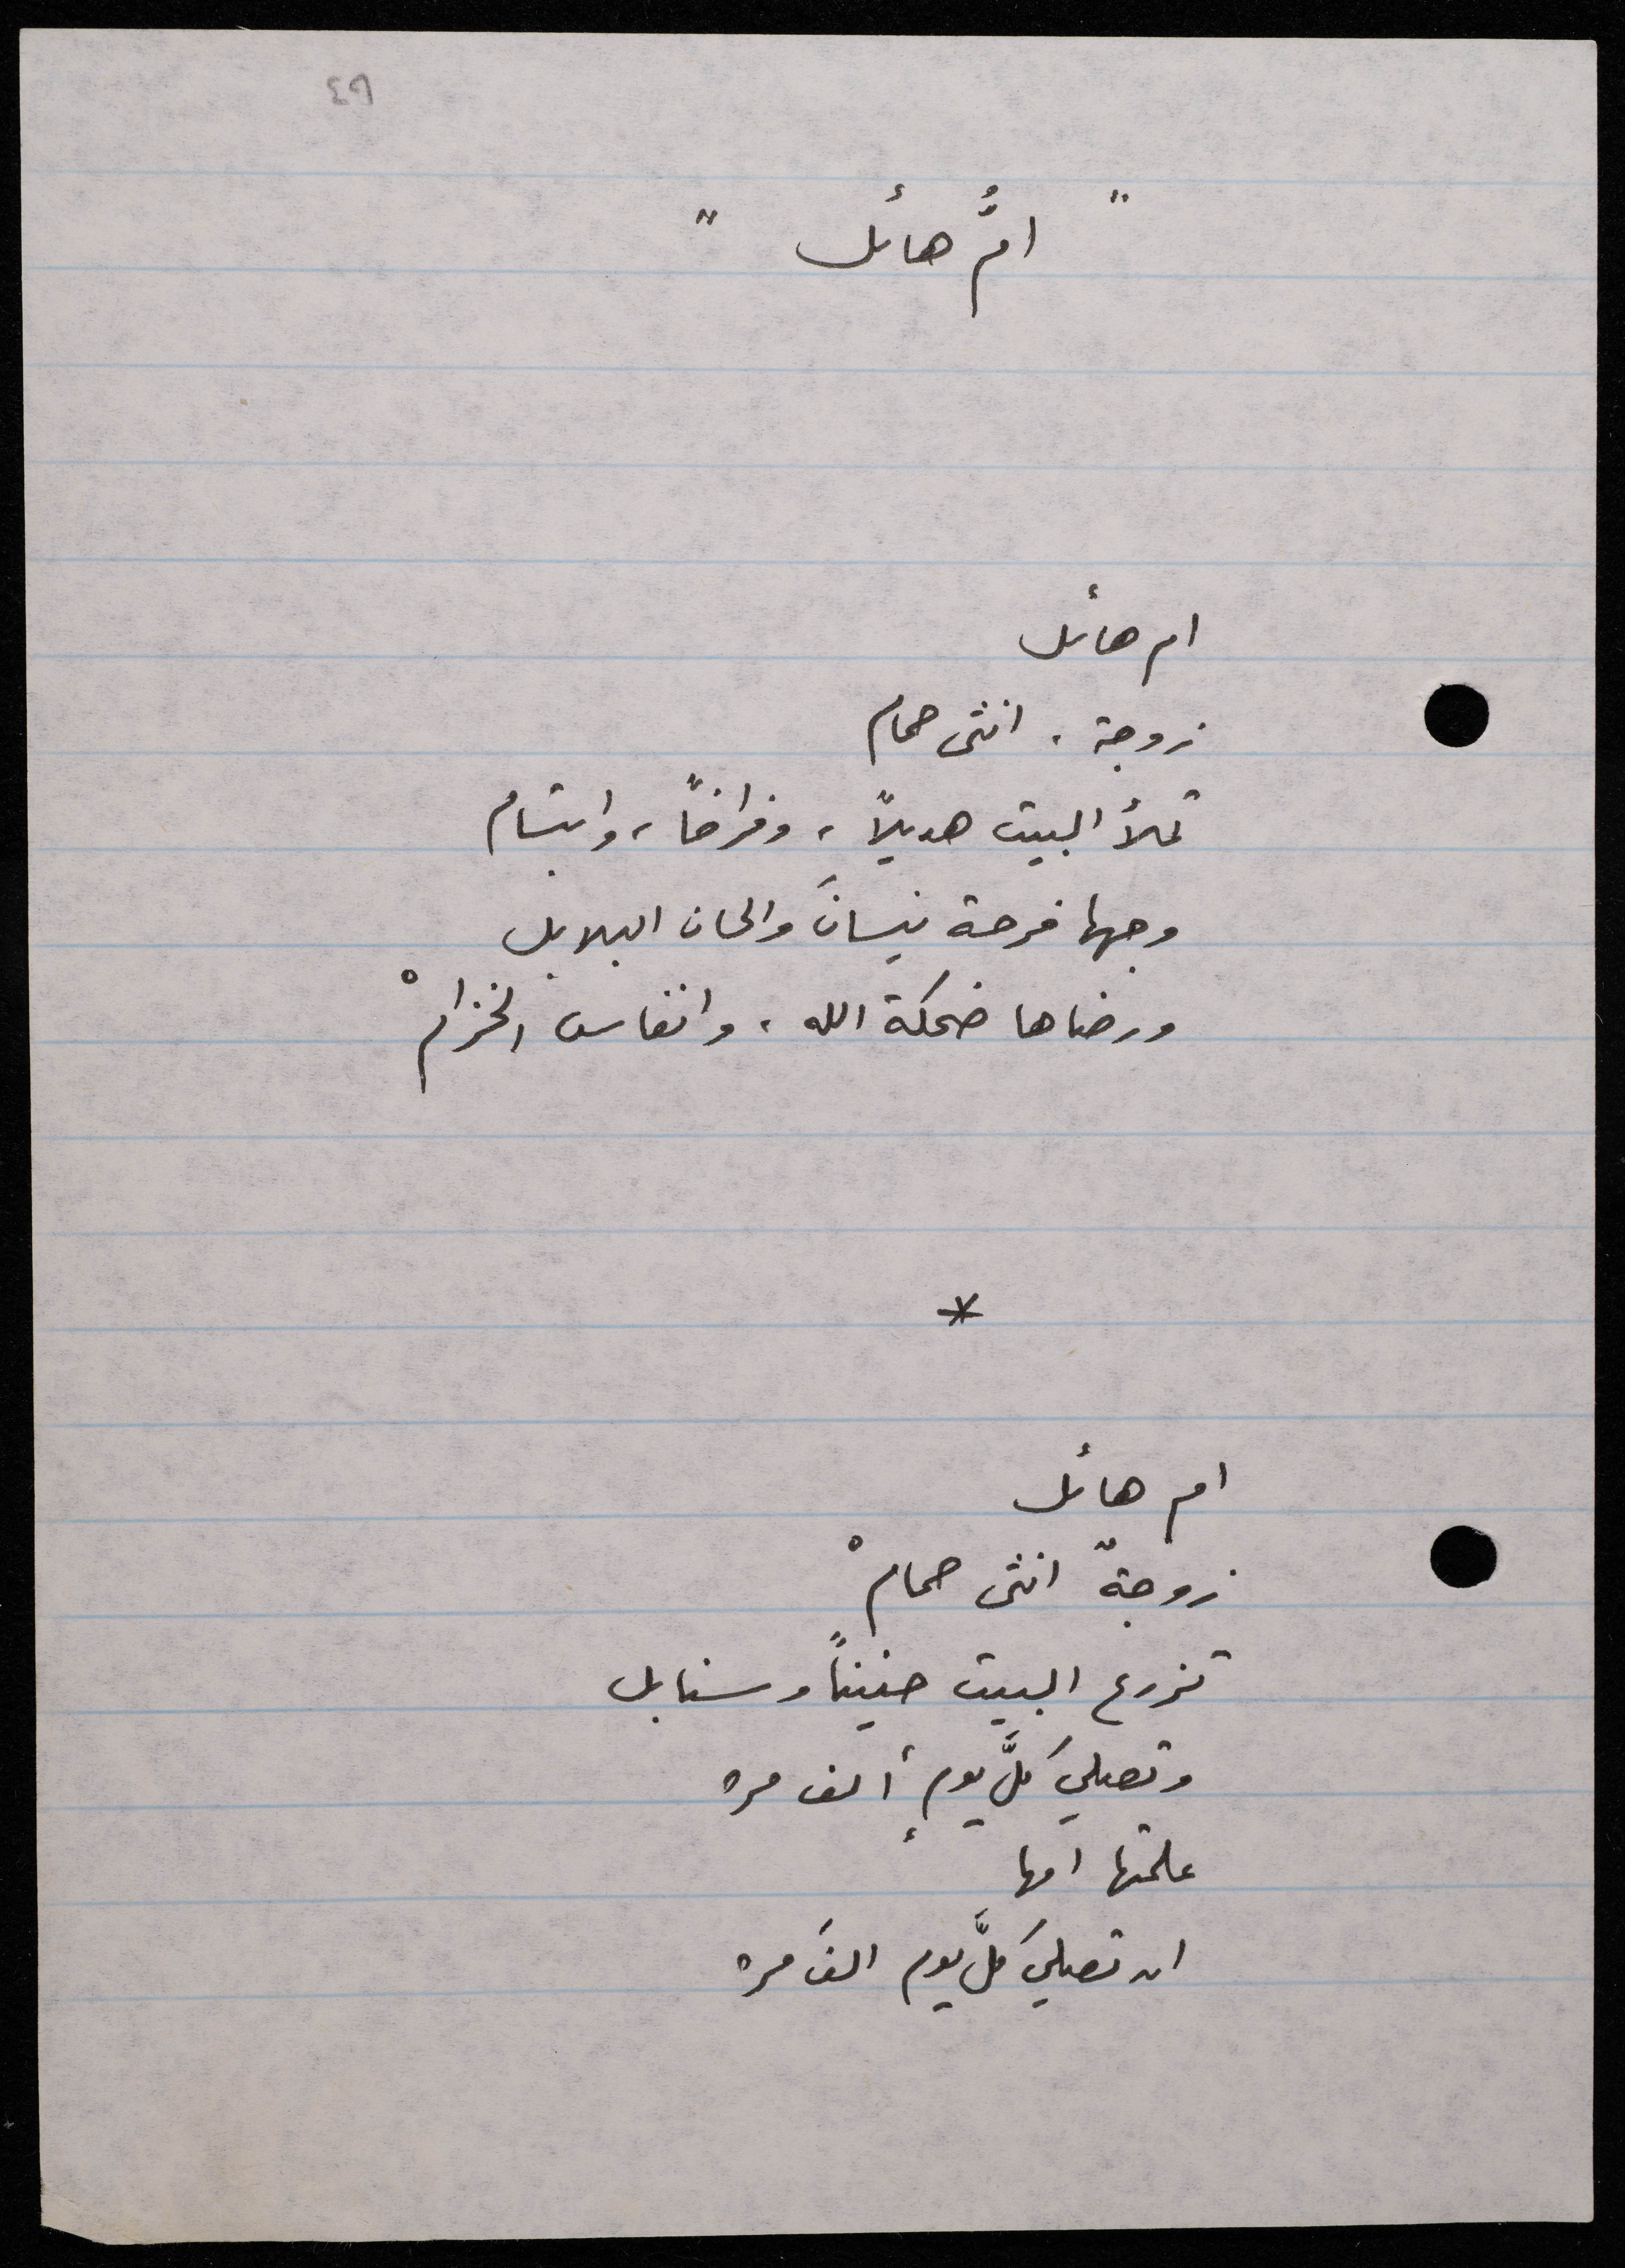 ٤٩
" امُّ هائل "
ام هائل
زوجة . انثى حمام
تملأ البيت هديلاً ، وفراخاً ، وابتسام
وجهها فرحة نيسانَ والحان البلابل
ورضاها ضحكة الله ، وانفاس الخزامْ
*
ام هائل
زوجةٌ انثى حمامْ
تزرع البيت حنيناً وسنابل
وتصلي كلَّ يومٍ ألف مره
علمتها أمها
ان تصليَ كلَّ يوم الفَ مره